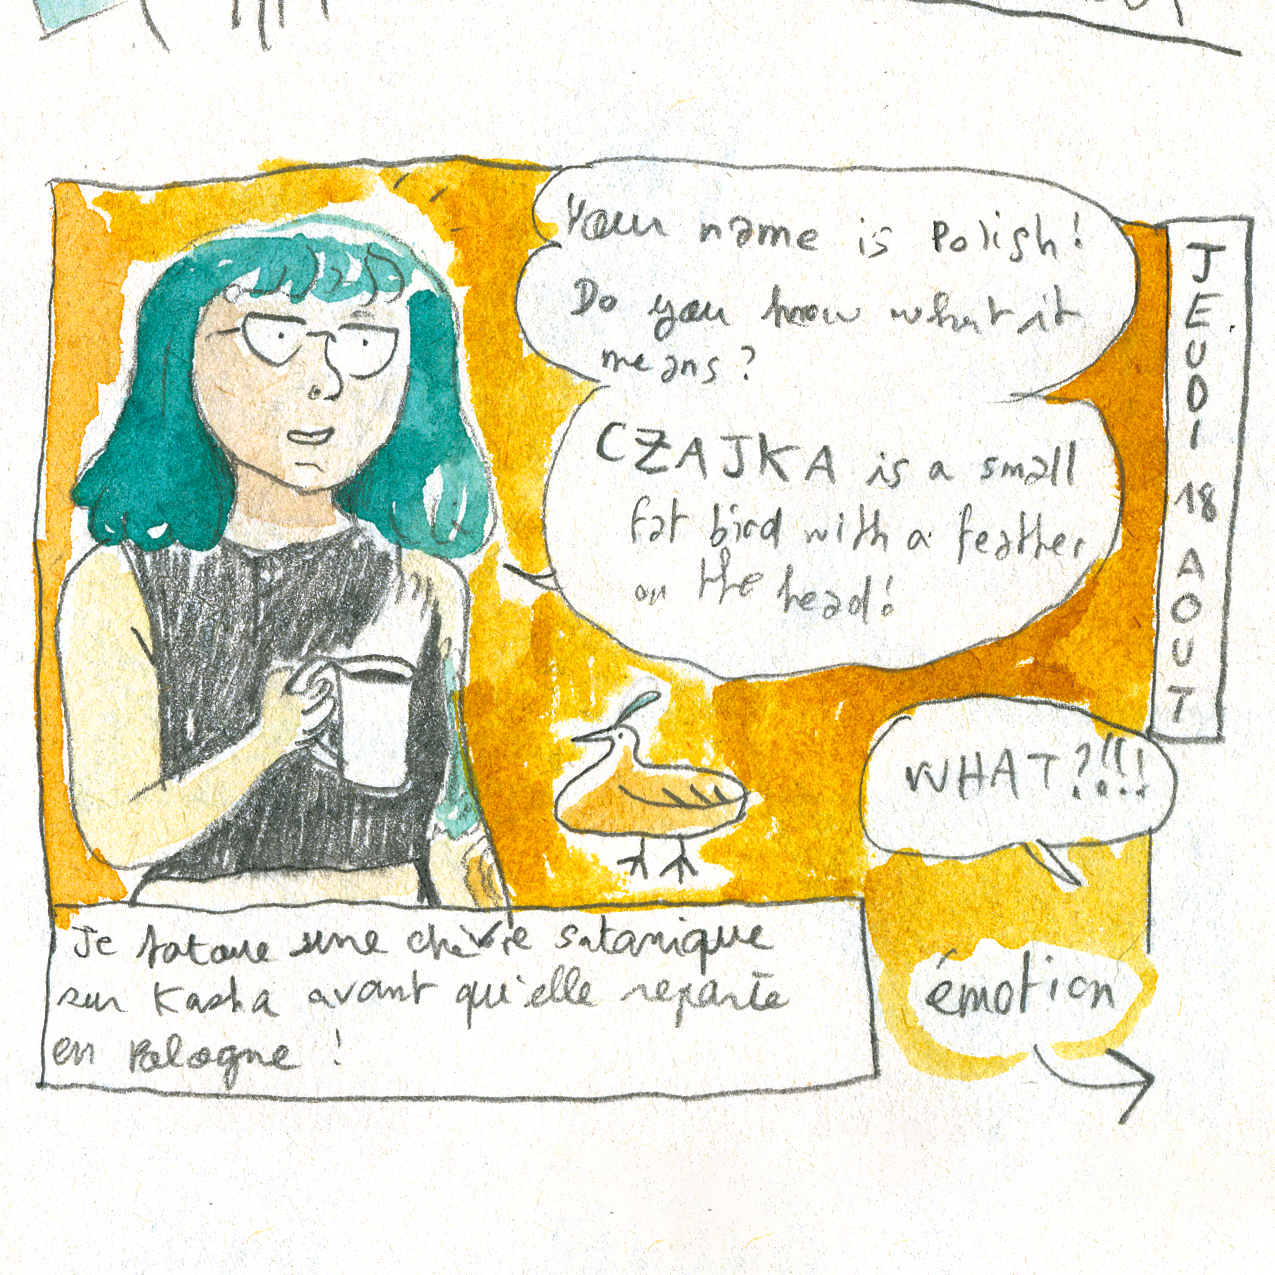 Your name is Polish!
Do you know what it
means?
CZAJKA is a small
fat bird with a feather
on the head!
JEUDI 18 AOUT
WHAT?!!!
Je tatoue une chèvre satanique
sur Kasha avant qu'elle reparte
en Pologne !
émotion